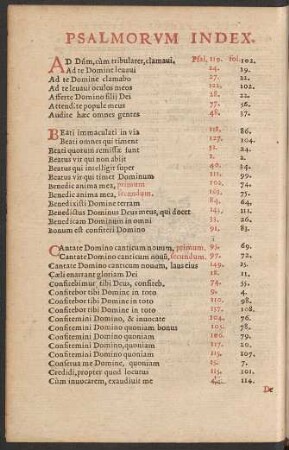 PSALMORVM INDEX.
AD Dñm, cùm tribularer, clamaui, Psal. 119. fol. 102.
Ad te Domine leuaui 24. 19.
Ad te Domine clamabo 27. 22.
Ad te leuaui oculos meos 122. 102.
Afferte Domino filij Dei 28. 22.
Attendite popule meus 77. 56.
Audite hæc omnes gentes 48. 37.
BEati immaculati in via 118. 86.
Beati omnes qui timent 127. 104.
Beati quorum remissæ sunt 31. 24.
Beatus vir qui non abijt 1. 2.
Beatus qui intelligit super 40. 31.
Beatus vir qui timet Dominum 111. 99.
Benedic anima mea, primum 102. 74.
Benedic anima mea, secundum. 103. 75.
Benedixisti Domine terram 84. 64.
Benedictus Dominus Deus meus, qui docet 143. 111.
Benedicam Dominum in omni 33. 26.
Bonum est confiteri Domino 91. 83.
CAntate Domino canticum nouum, primum. 95. 69.
Cantate Domino canticum nouũ, secundum. 97. 72.
Cantate Domino canticum nouum, laus eius 149. 35.
Cæli enarrant gloriam Dei 18. 11.
Confitebimur tibi Deus, confiteb. 74. 35.
Confitebor tibi Domine in toto 9. 4.
Confitebor tibi Domine in toto 110. 98.
Confitebor tibi Domine in toto 137. 108.
Confitemini Domino, & inuocate 104. 76.
Confitemini Domino quoniam bonus 105. 78.
Confitemini Domino quoniam 106. 79.
Confitemini Domino, quoniam 117. 20.
Confitemini Domino quoniam 135. 107.
Conserua me Domine, quoniam 15. 7.
Credidi, propter quod locutus 115. 101.
Cùm inuocarem, exaudiuit me 4. 114.
De